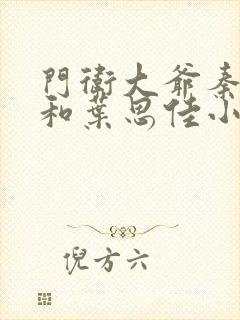 門衛大爺秦
和葉思佳小
倪方六